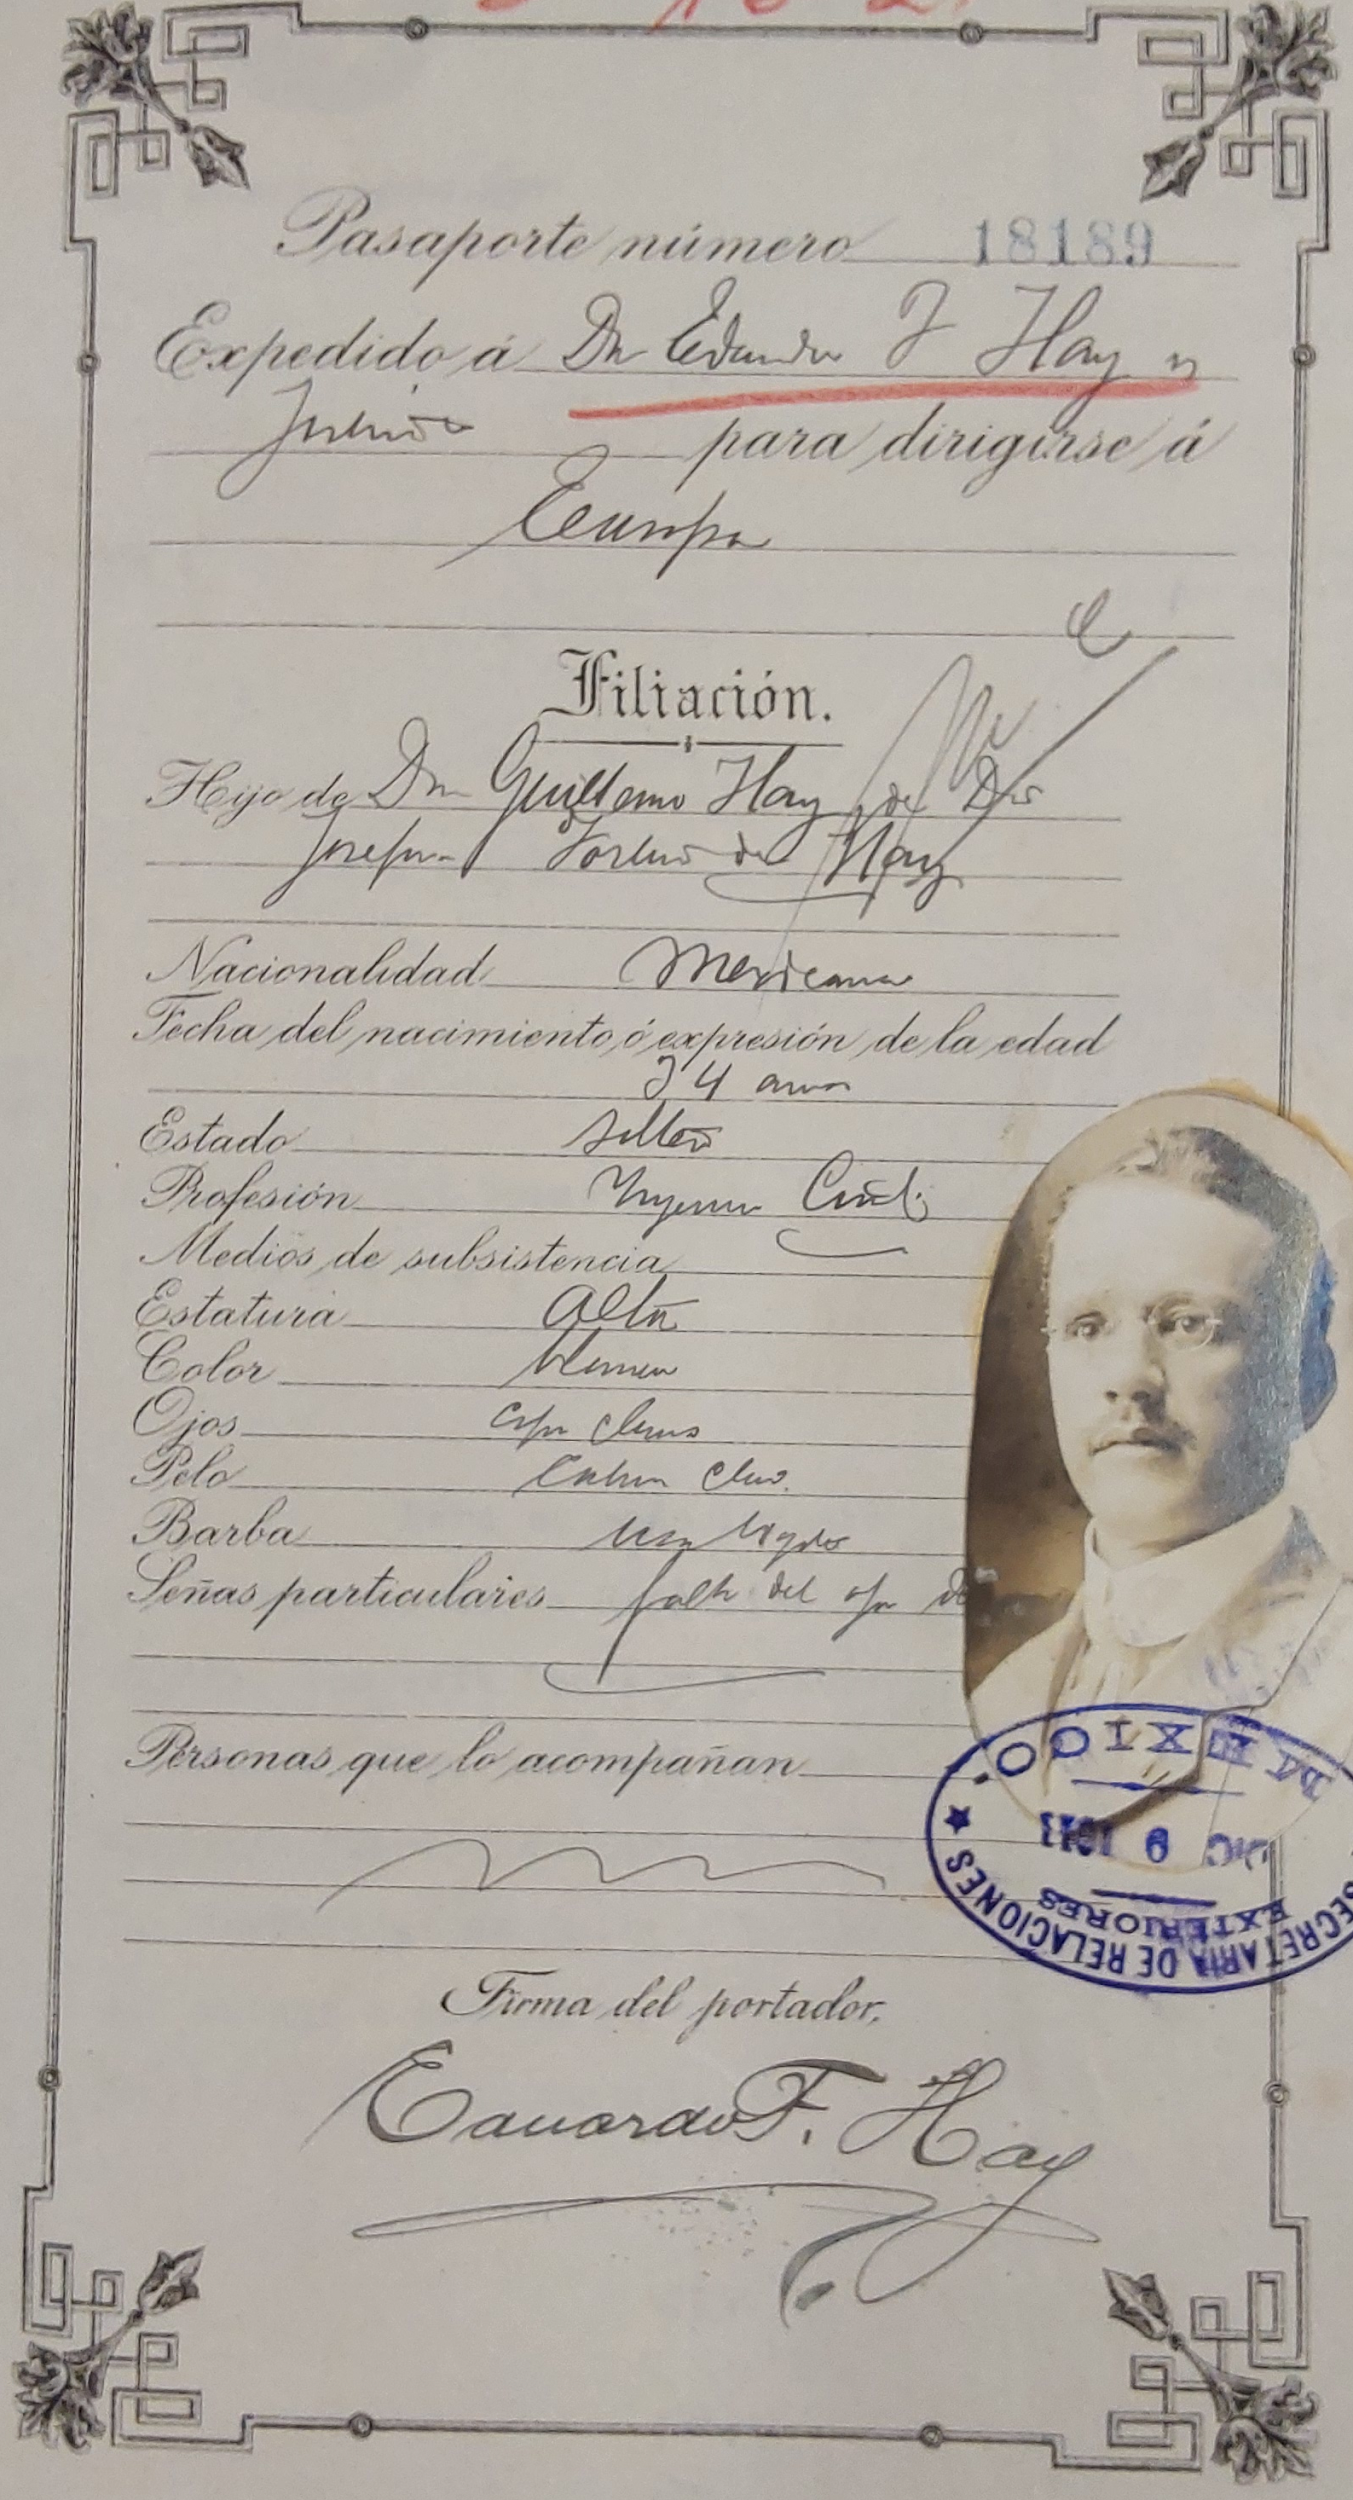 Pasaporte número 18189
Expedido á Dn Eduardo F Hay y
para dirigirse á
Europa
Filiación.
Hijo de Dn Guillermo Hay y de Da
Josefa de Hay
Nacionalidad Mexicana
Fecha del nacimiento, ó expresión de la edad
34 anos
Estado soltero
Profesión Ingeniero Civil
Medios de subsistencia
Estatura Alta
Color blanco
Ojos cafe claros
Pelo Castaño claro.
Barba usa bigote
Señas particulares falta del ojo de
Personas que lo acompañan
Firma del portador,
Eduardo F. Hay
SECRETARIA DE RELACIONES
EXTERIORES
DIC 6 1911
MEXICO.